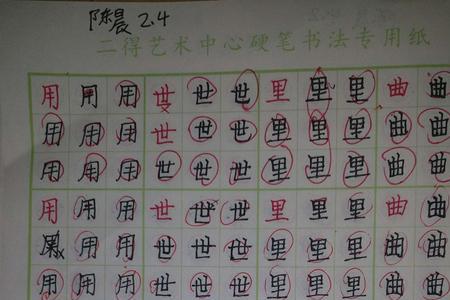 陈晨 2.4
二得艺术中心硬笔书法专用纸
用用用世世世里里里曲曲
用用用世世世里里里曲曲
用用用世世世里里里曲曲
用用用世世世里里里曲曲
用用用世世世里里里曲曲
用用用世世世里里里曲曲